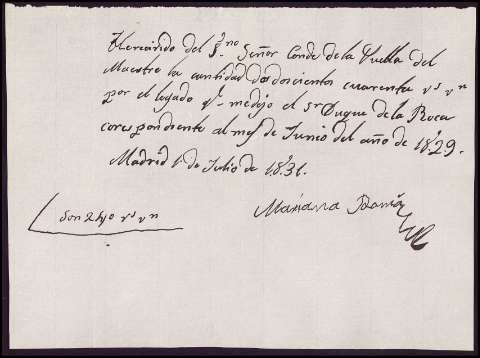 He recivido del S.no Señor Conde de la Puebla del
Maestre la cantidad de doscientos cuarenta rs vn
por el legado qe me dejo el sr Duque de la Roca
corespondiente al mes de Junio del año de 1829.
Madrid 1 de Julio de 1831.
Mariana Ramí
Son 240 rs vn